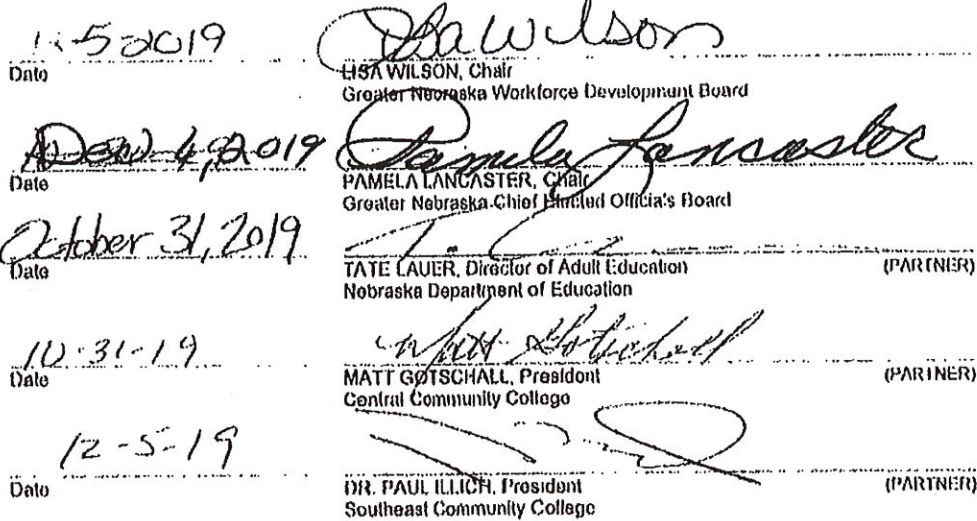 11-5-2019 Lisa Wilson
Date LISA WILSON, Chair
Greater Nebraska Workforce Development Board
4, 2019 Pamela Lancaster
Date PAMELA LANCASTER, Chair
Greater Nebraska Chief Elected Official's Board
October 31, 2019 T.
Date TATE LAUER, Director of Adult Education (PARTNER)
Nebraska Department of Education
10-31-19 Matt Gotschall
Date MATT GOTSCHALL, President (PARTNER)
Central Community College
12-5-19
Date DR. PAUL ILLICH, President (PARTNER)
Southeast Community College